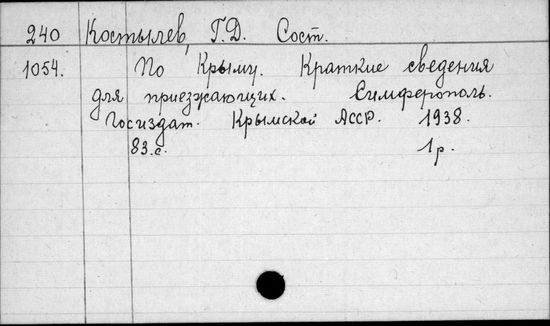 240 Костылев, Г.Д. Сост.
1054. По Крыму. Краткие сведения
для приезжающих. Симферополь.
Госиздат. Крымской АССР. 1938.
83.с. 1р.